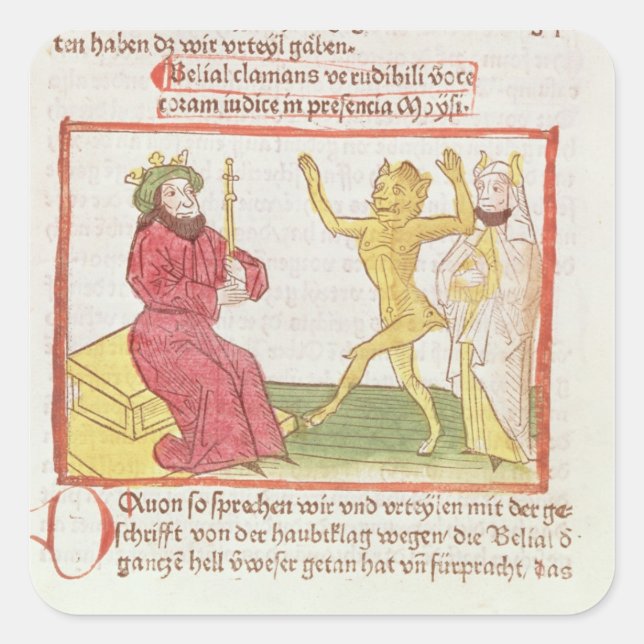 ten haben dz wir vrteyl gäben.
Belial clamans ve rudibili voce
coram iudice in presencia Moysi.
Quon so sprechen wir vnd vrteylen mit der ge
schrifft von der haubtklag wegen/ die Belial d
gantzē hell v̈weser getan hat vn̄ fürpracht/ das